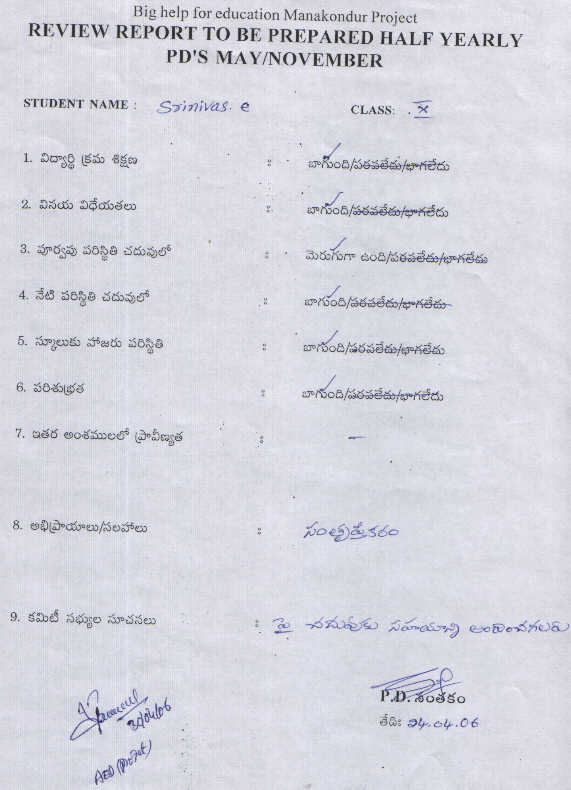 Big help for education Manakondur Project
REVIEW REPORT TO BE PREPARED HALF YEARLY
PD'S MAY/NOVEMBER
STUDENT NAME : Srinivas. e CLASS: X
1. విద్యార్థి క్రమ శిక్షణ : బాగుంది/పరవలేదు/భాగలేదు
2. వినయ విధేయతలు : బాగుంది/పరవలేదు/భాగలేదు
3. పూర్వపు పరిస్థితి చదువులో : మెరుగుగా ఉంది/పరవలేదు/భాగలేదు
4. నేటి పరిస్థితి చదువులో : బాగుంది/పరవలేదు/భాగలేదు
5. స్కూలుకు హాజరు పరిస్థితి : బాగుంది/పరవలేదు/భాగలేదు
6. పరిశుభ్రత : బాగుంది/పరవలేదు/భాగలేదు
7. ఇతర అంశములలో ప్రావీణ్యత : –
8. అభిప్రాయాలు/సలహాలు : సంతృప్తికరం
9. కమిటీ సభ్యుల సూచనలు : పై చదువులకు సహయాన్ని అందించగలరు
P.D. సంతకం
తేది: 24.04.06
AED (Project)